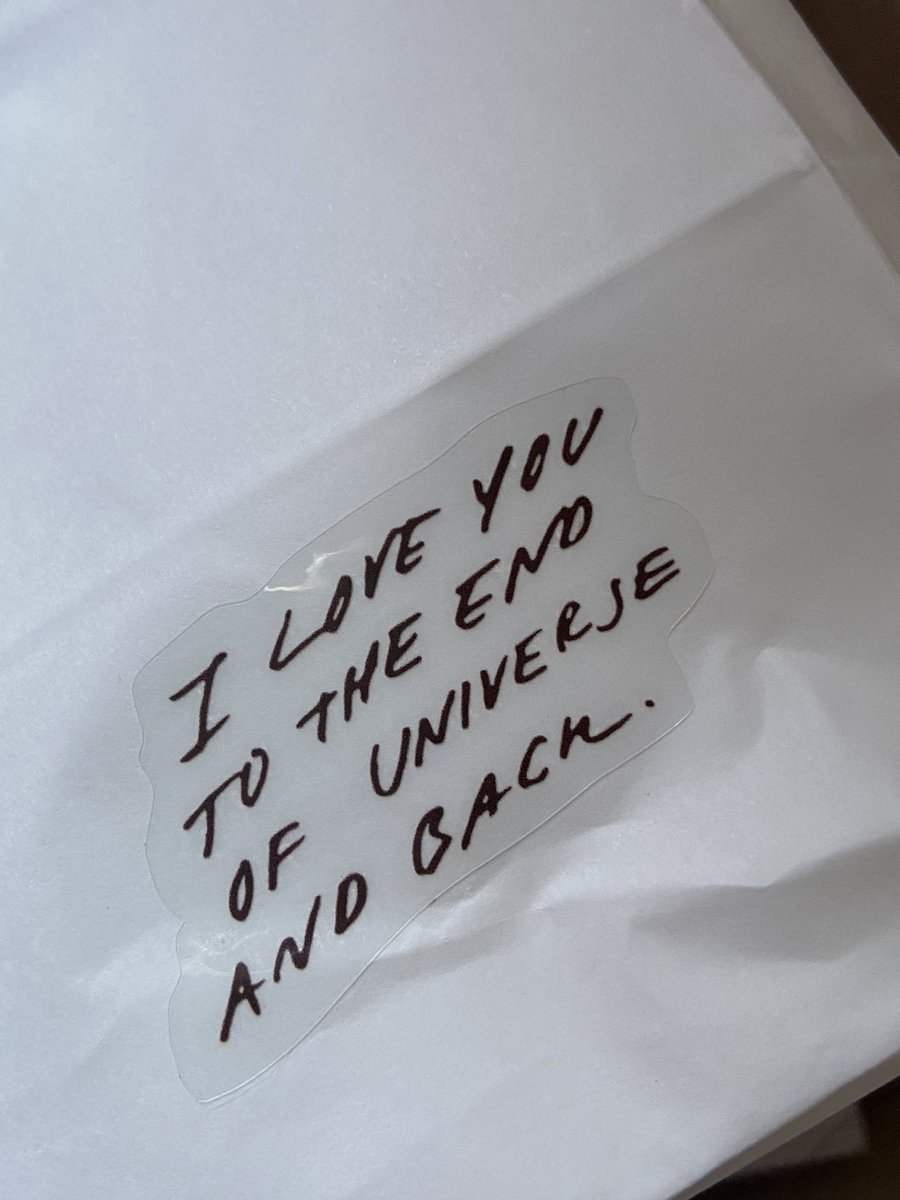 I LOVE YOU
TO THE END
OF UNIVERSE
AND BACK.